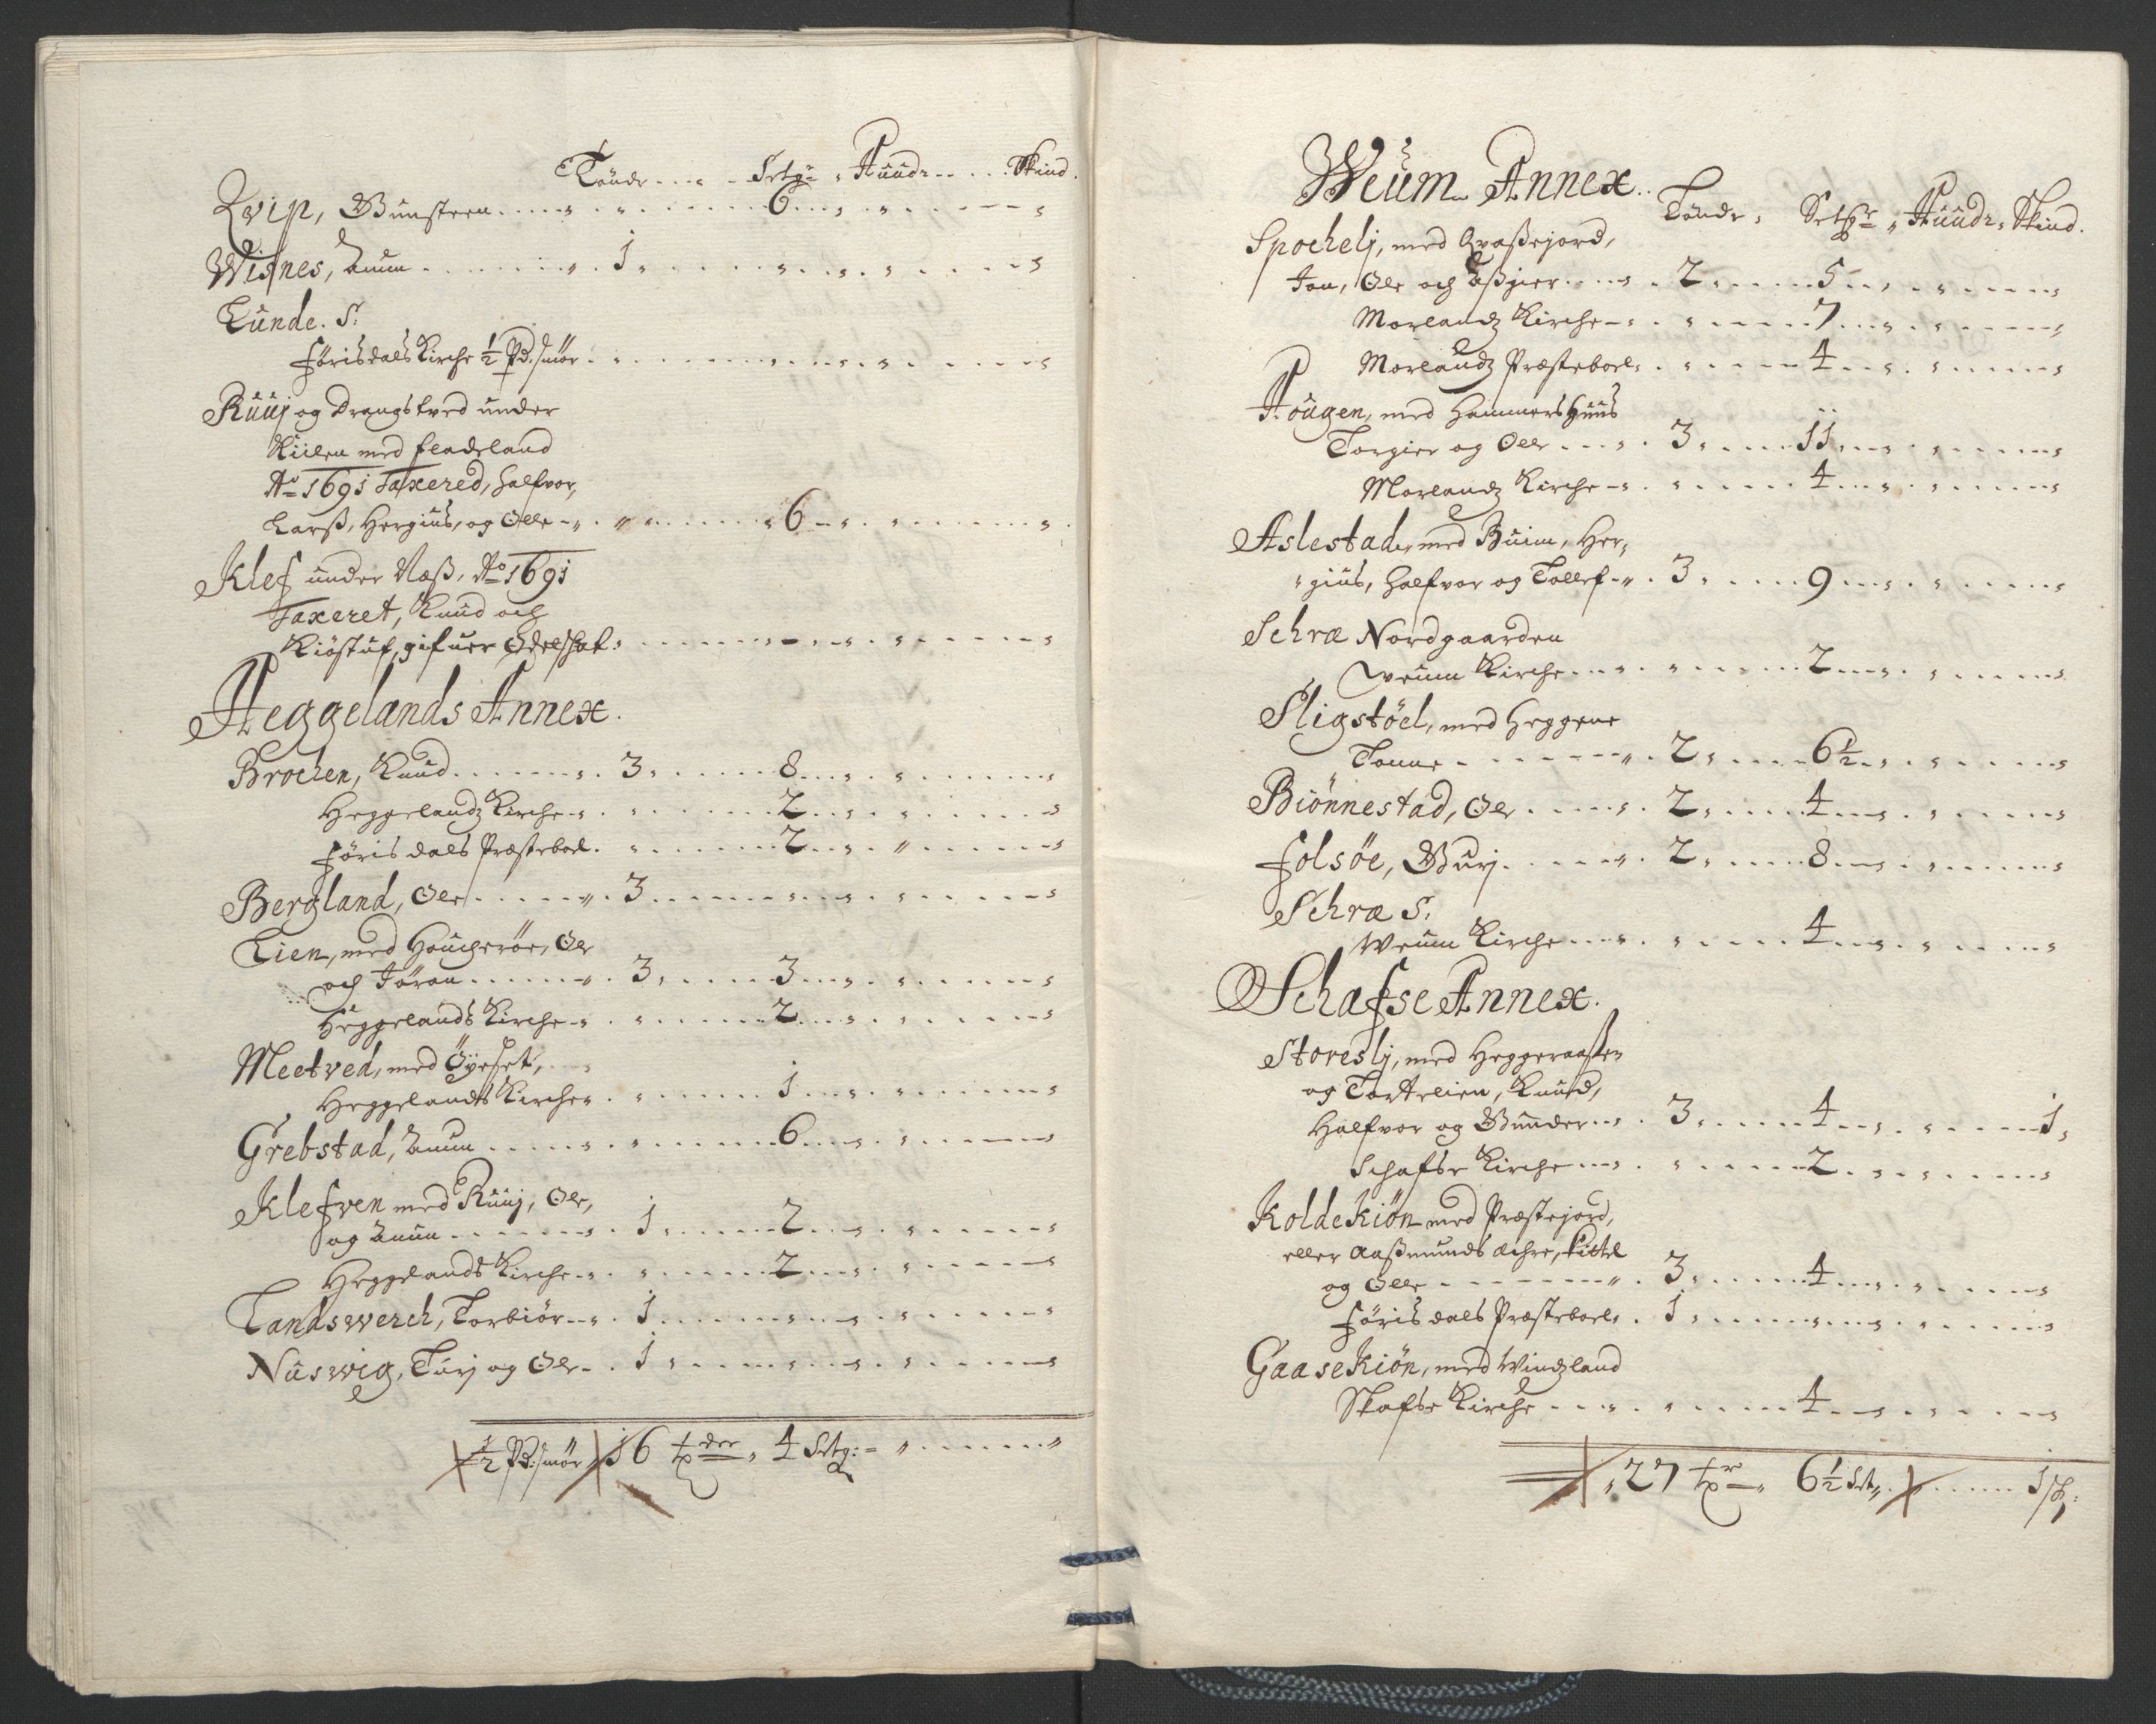 Tönde - - - Setg: Huudr - - - Skind.
Qvip, Gunsteen - - - 6 - - -
Wisnes, Anun - - - 1 - - -
Lunde. S:
Förisdals Kirche ½ Pd. smör - - -
Ruuj og Drangstved under
Kiilen med fladeland
Ao 1691 Taxered, Halfvor,
Larss, Hergius, og Olle - - - 6 - - -
Klef under Næss, Ao 1691
Taxeret, Knud och
Kiöstuf, gifuer Odelschat - - -
Heggelands Annex.
Brochen, Knud - - - 3 - - - 8 - - -
Heggelandz Kirche - - - 2 - - -
Föris dals Præsteboel - - - 2 - - -
Bergland, Ole - - - 3 - - -
Lien, med Houcheröe, Ole
och Jöran - - - 3 - - - 3 - - -
Heggelands Kirche - - - 2 - - -
Meetved, med Öyeset,
Heggelands Kirche - - - 1 - - -
Grebstad, Anun - - - 6 - - -
Klefven med Ruuj, Ole,
og Anun - - - 1 - - - 2 - - -
Heggelands Kirche - - - 2 - - -
Landswerch, Torbiör - - - 1 - - -
Nuswig, Turj og Ole - - - 1 - - -
½ Pd: smör 16 tr der, 4 Setg: - - -
Weum Annex.
Tönde, Setgr, Huudr, Skind.
Spochelj, med Qvassejord,
Jon, Ole och Assgier - - - 2 - - - 5 - - -
Morlandz Kirche - - - 7 - - -
Morlandz Præsteboel - - - 4 - - -
Hougen, med Hammershuus
Torgier og Olle - - - 3 - - - 11 - - -
Morlandz Kirche - - - 4 - - -
Aslestad, med Buim, Her,
gius, Halfvor og Tollef - - - 3 - - - 9 - - -
Schræ Nordgaarden
Weum Kirche - - - 2 - - -
Sligstöel, med Heggene
Tonne - - - 2 - - - 6½ - - -
Biönnestad, Ole - - - 2 - - - 4 - - -
Folsöe, Gurj - - - 2 - - - 8 - - -
Schræ S:
Weum Kirche - - - 4 - - -
Schafse Annex.
Storeslj, med Heggeraassen
og Tortelien, Knud,
Halfvor og Gunder - - - 3 - - - 4 - - - 1,
Schafse Kirche - - - 2 - - -
Koldekiön med Præstejord,
eller Aassmunds Achre, Kittel
og Olle - - - 3 - - - 4 - - -
Föris dals Præsteboel - 1 - - -
Gaasekiön, med Windzland
Skafse Kirche - - - 4 - - -
27 tr, 6½ Set, - - - 1 sk: